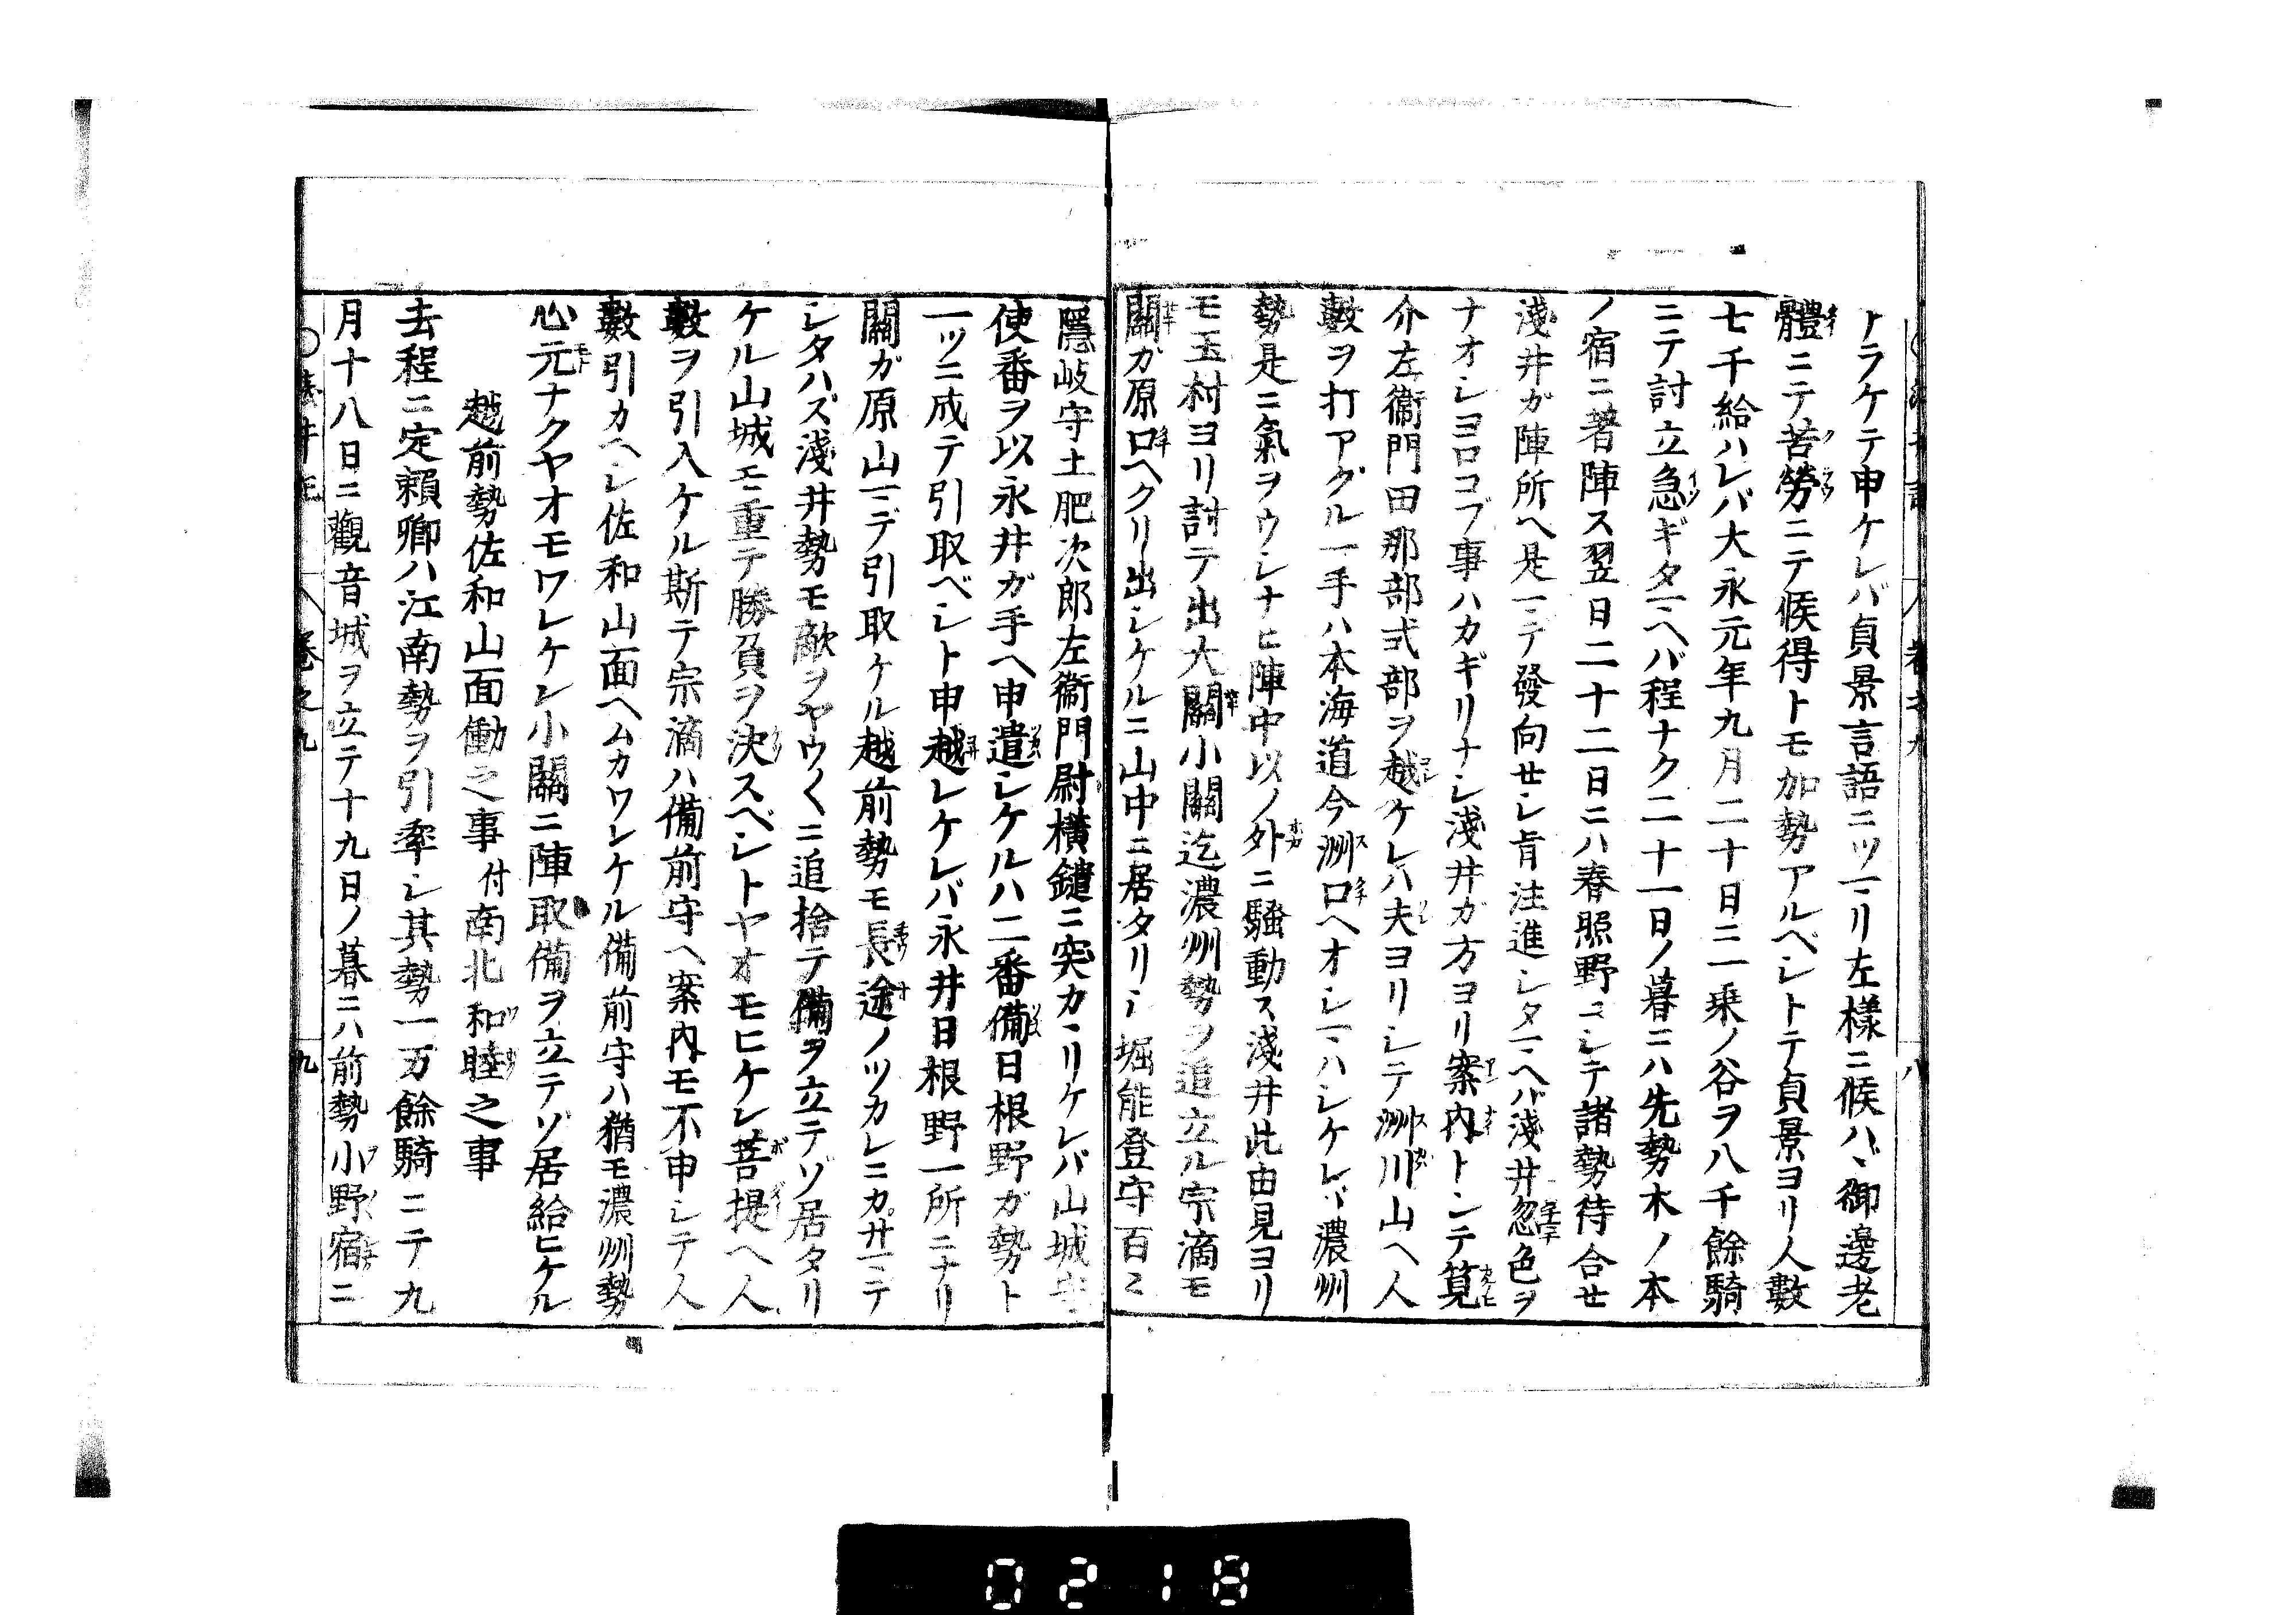 トラケテ申ケレバ貞景言語ニツマリ左樣ニ候ハヽ御邊老
體ニテ苦勞ニテ候得トモ加勢アルベシトテ貞景ヨリ人數
七千給ハレバ大永元年九月二十日ニ一乗ノ谷ヲ八千餘騎
ニテ討立急ギタマヘバ程ナク二十一日ノ暮ニハ先勢木ノ本
ノ宿ニ著陣ス翌日二十二日ニハ春照野ニシテ諸勢待合せ
淺井ガ陣所ヘ是マテ發向せシ旨注進シタマヘバ淺井忽色ヲ
ナオシヨロコブ事ハカギリナシ淺井ガ方ヨリ案内トシテ筧
介左衞門田那部式部ヲ越ケレハ夫ヨリシテ洲川山ヘ人
數ヲ打アグル一手ハ本海道今洲口ヘオシマハシケレバ濃州
勢是ニ氣ヲウシナヒ陣中以ノ外ニ騷動ス淺井此由見ヨリ
モ玉村ヨリ討テ出大關小關迄濃州勢ヲ追立ル宗滴モ
關ガ原口ヘクリ出シケルニ山中ニ居タリシ堀能登守百々
隱岐守土肥次郎左衞門尉横鑓ニ突カヽリケレバ山城守
使番ヲ以永井ガ手ヘ申遣シケルハ二番備日根野ガ勢ト
一ツニ成テ引取ベシト申越レケレバ永井日根野一所ニナリ
關ガ原山マデ引取ケル越前勢モ長途ノツカレニカサ子テ
シタハズ淺井勢モ敵ヲヤウ〱ニ追捨テ備ヲ立テゾ居タリ
ケル山城モ重テ勝負ヲ決スベシトヤオモヒケン菩提ヘ人
數ヲ引入ケル斯テ宗滴ハ備前守ヘ案内モ不申シテ人
數引カヘシ佐和山面ヘムカワレケル備前守ハ猶モ濃州勢
心元ナクヤオモワレケン小關ニ陣取備ヲ立テゾ居給ヒケル
越前勢佐和山面働之事 付南北和睦之事
去程ニ定賴卿ハ江南勢ヲ引率シ其勢一万餘騎ニテ九
月十八日ニ觀音城ヲ立テ十九日ノ暮ニハ前勢小野宿ニ
卷之九
九
0218